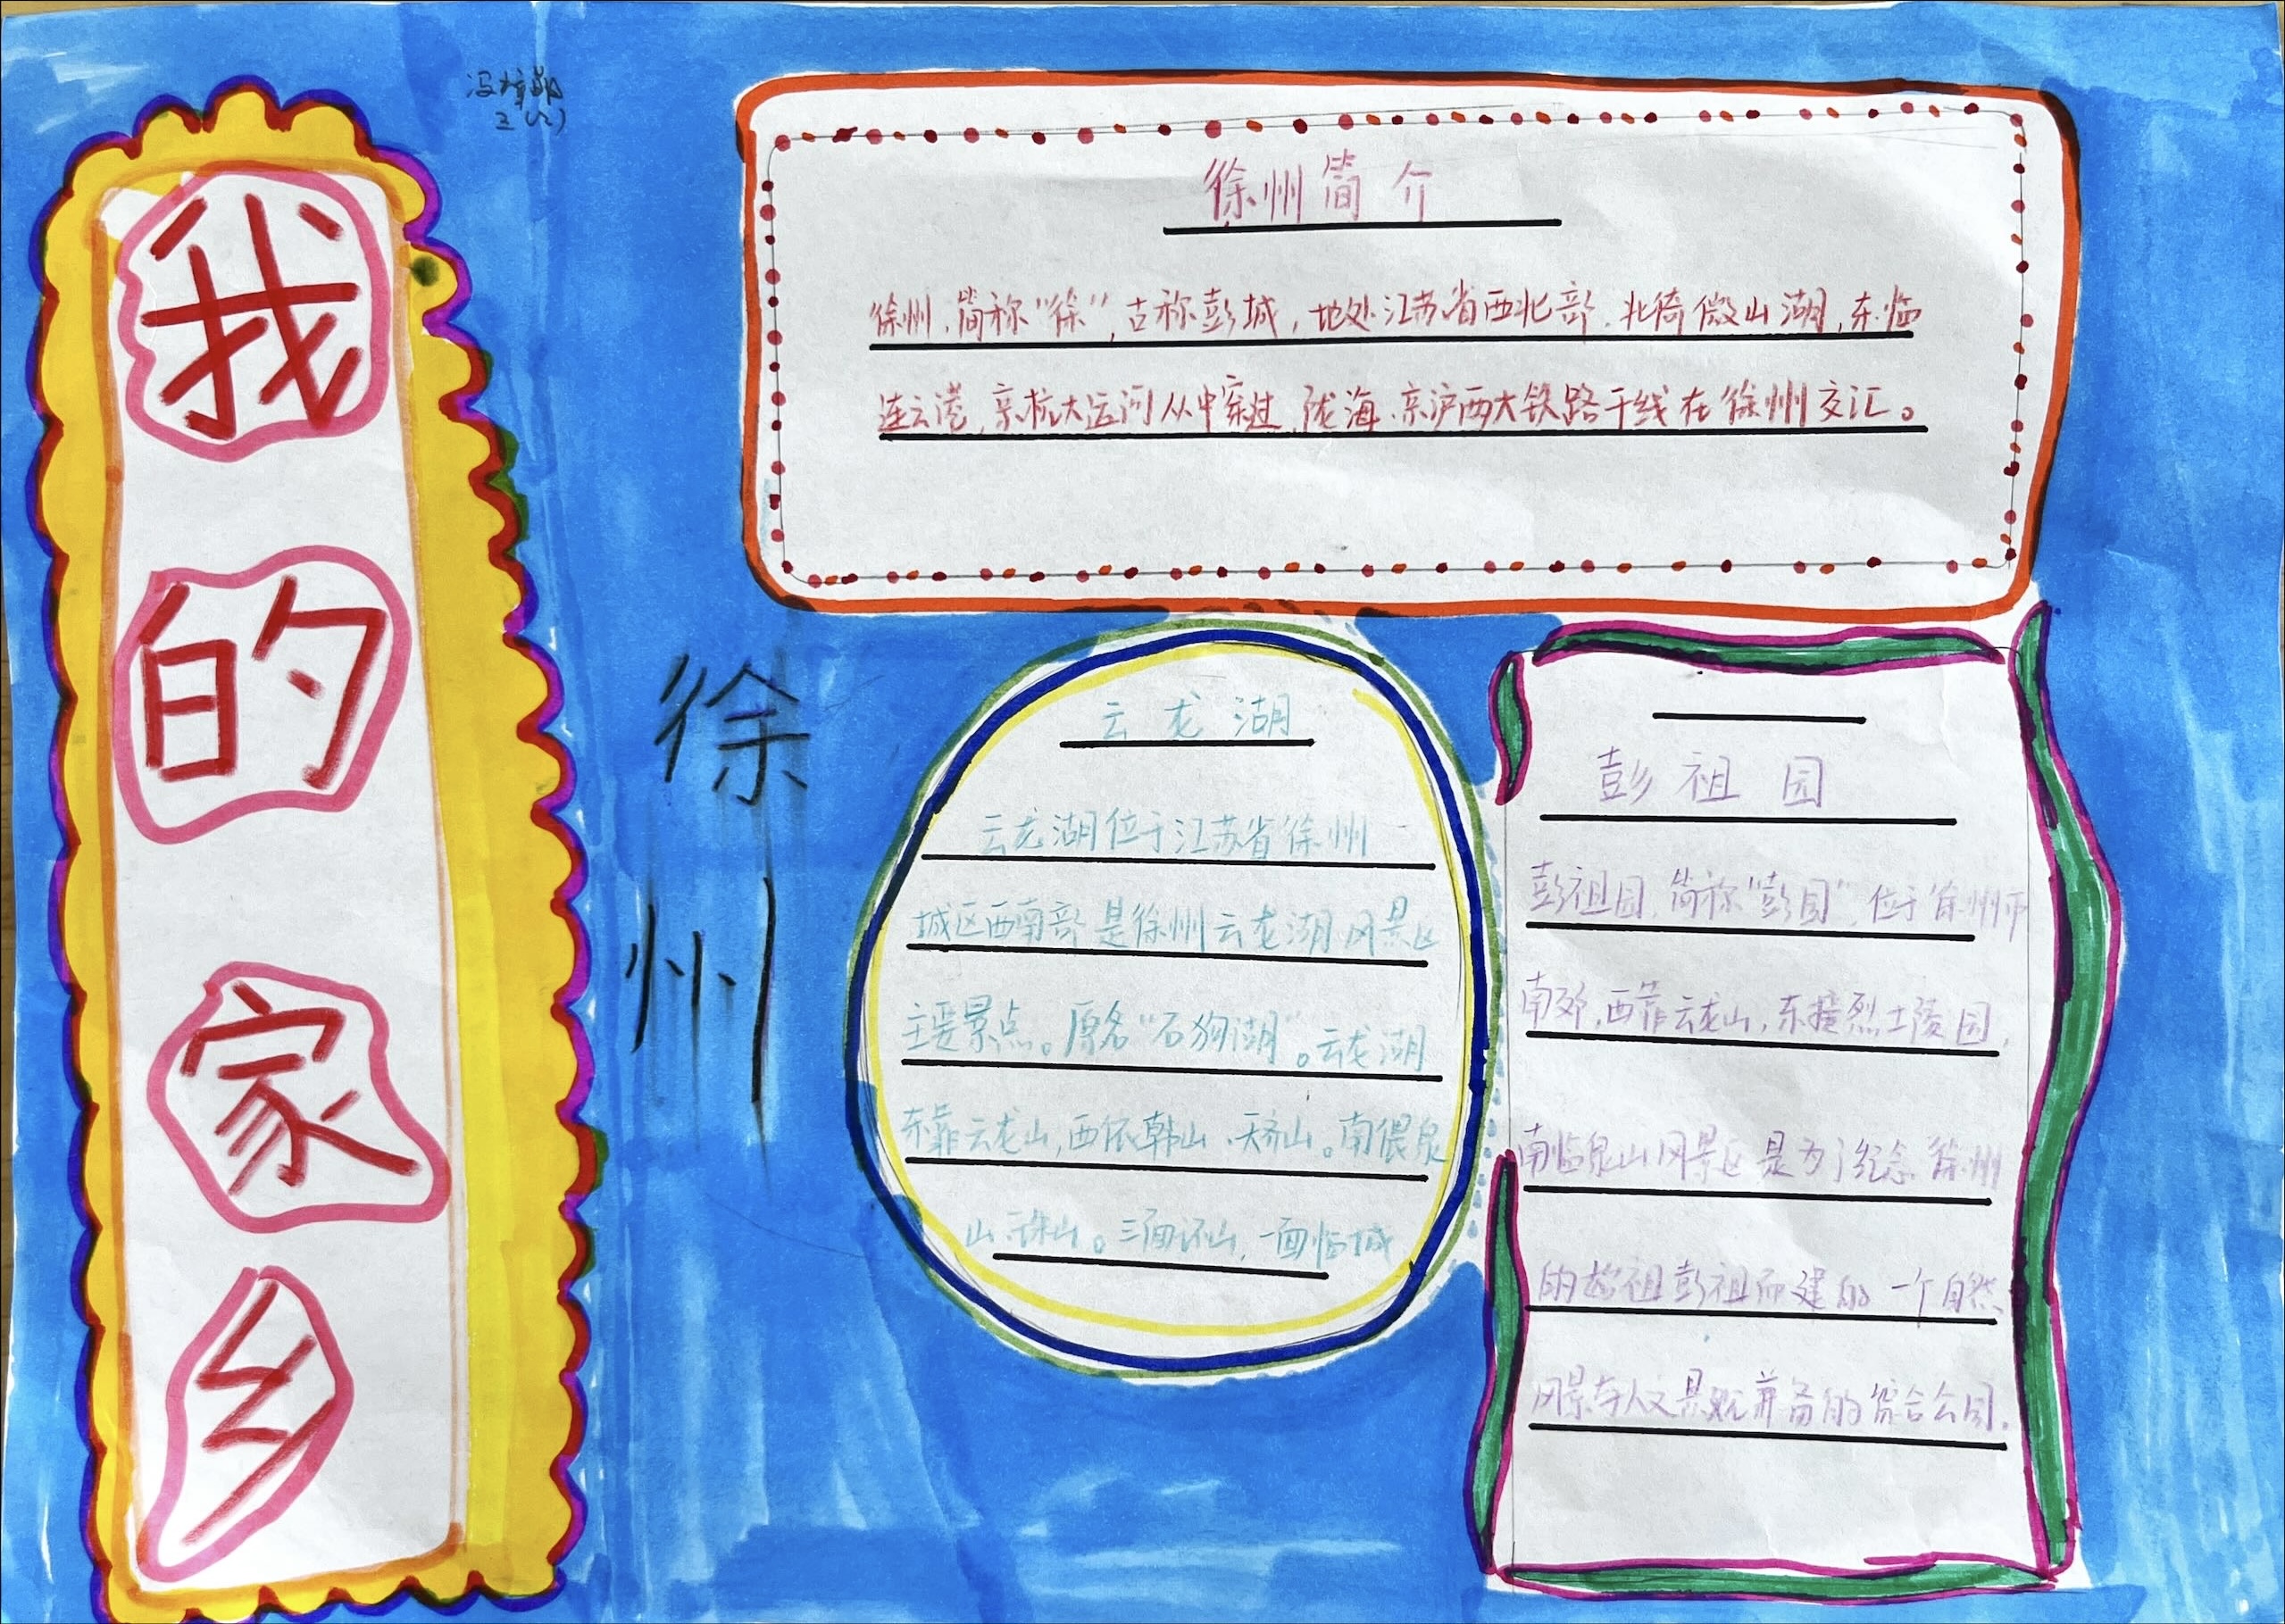 我的家乡
冯
三(2)
徐州
徐州简介
徐州,简称“徐”,古称彭城,地处江苏省西北部.北倚微山湖,东临
连云港,京杭大运河从中穿过,陇海.京沪两大铁路干线在徐州交汇。
云龙湖
云龙湖位于江苏省徐州
城区西南部是徐州云龙湖风景区
主要景点。原名“石狗湖”。云龙湖
东靠云龙山,西依韩山.天齐山。南偎泉
山.珠山。三面环山,一面临城
彭祖园
彭祖园,简称“彭园”,位于徐州市
南郊,西靠云龙山,东接烈士陵园,
南临泉山风景区是为了纪念徐州
的始祖彭祖而建的一个自然
风景与人文景观兼备的综合公园.